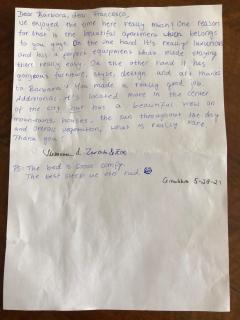 Dear Barbara, dear Francesco,
we enjoyed the time here really much! One reason
for that is the beautiful apartment which belongs
to you guys. On the one hand it's really luxurious
and has a perfect equipment which made staying
there really easy. On the other hand it has
gorgeous furniture, style, design and art thanks
to Barbara! You made a really good job.
Additional it's located more in the center
of the city but has a beautiful view on
mountains, houses, the sun throughout the day
and overall vegetation, what is really rare.
Thank you!
&
PS: The bed is sooo comfy.
The best sleep we ever had
5-29-21